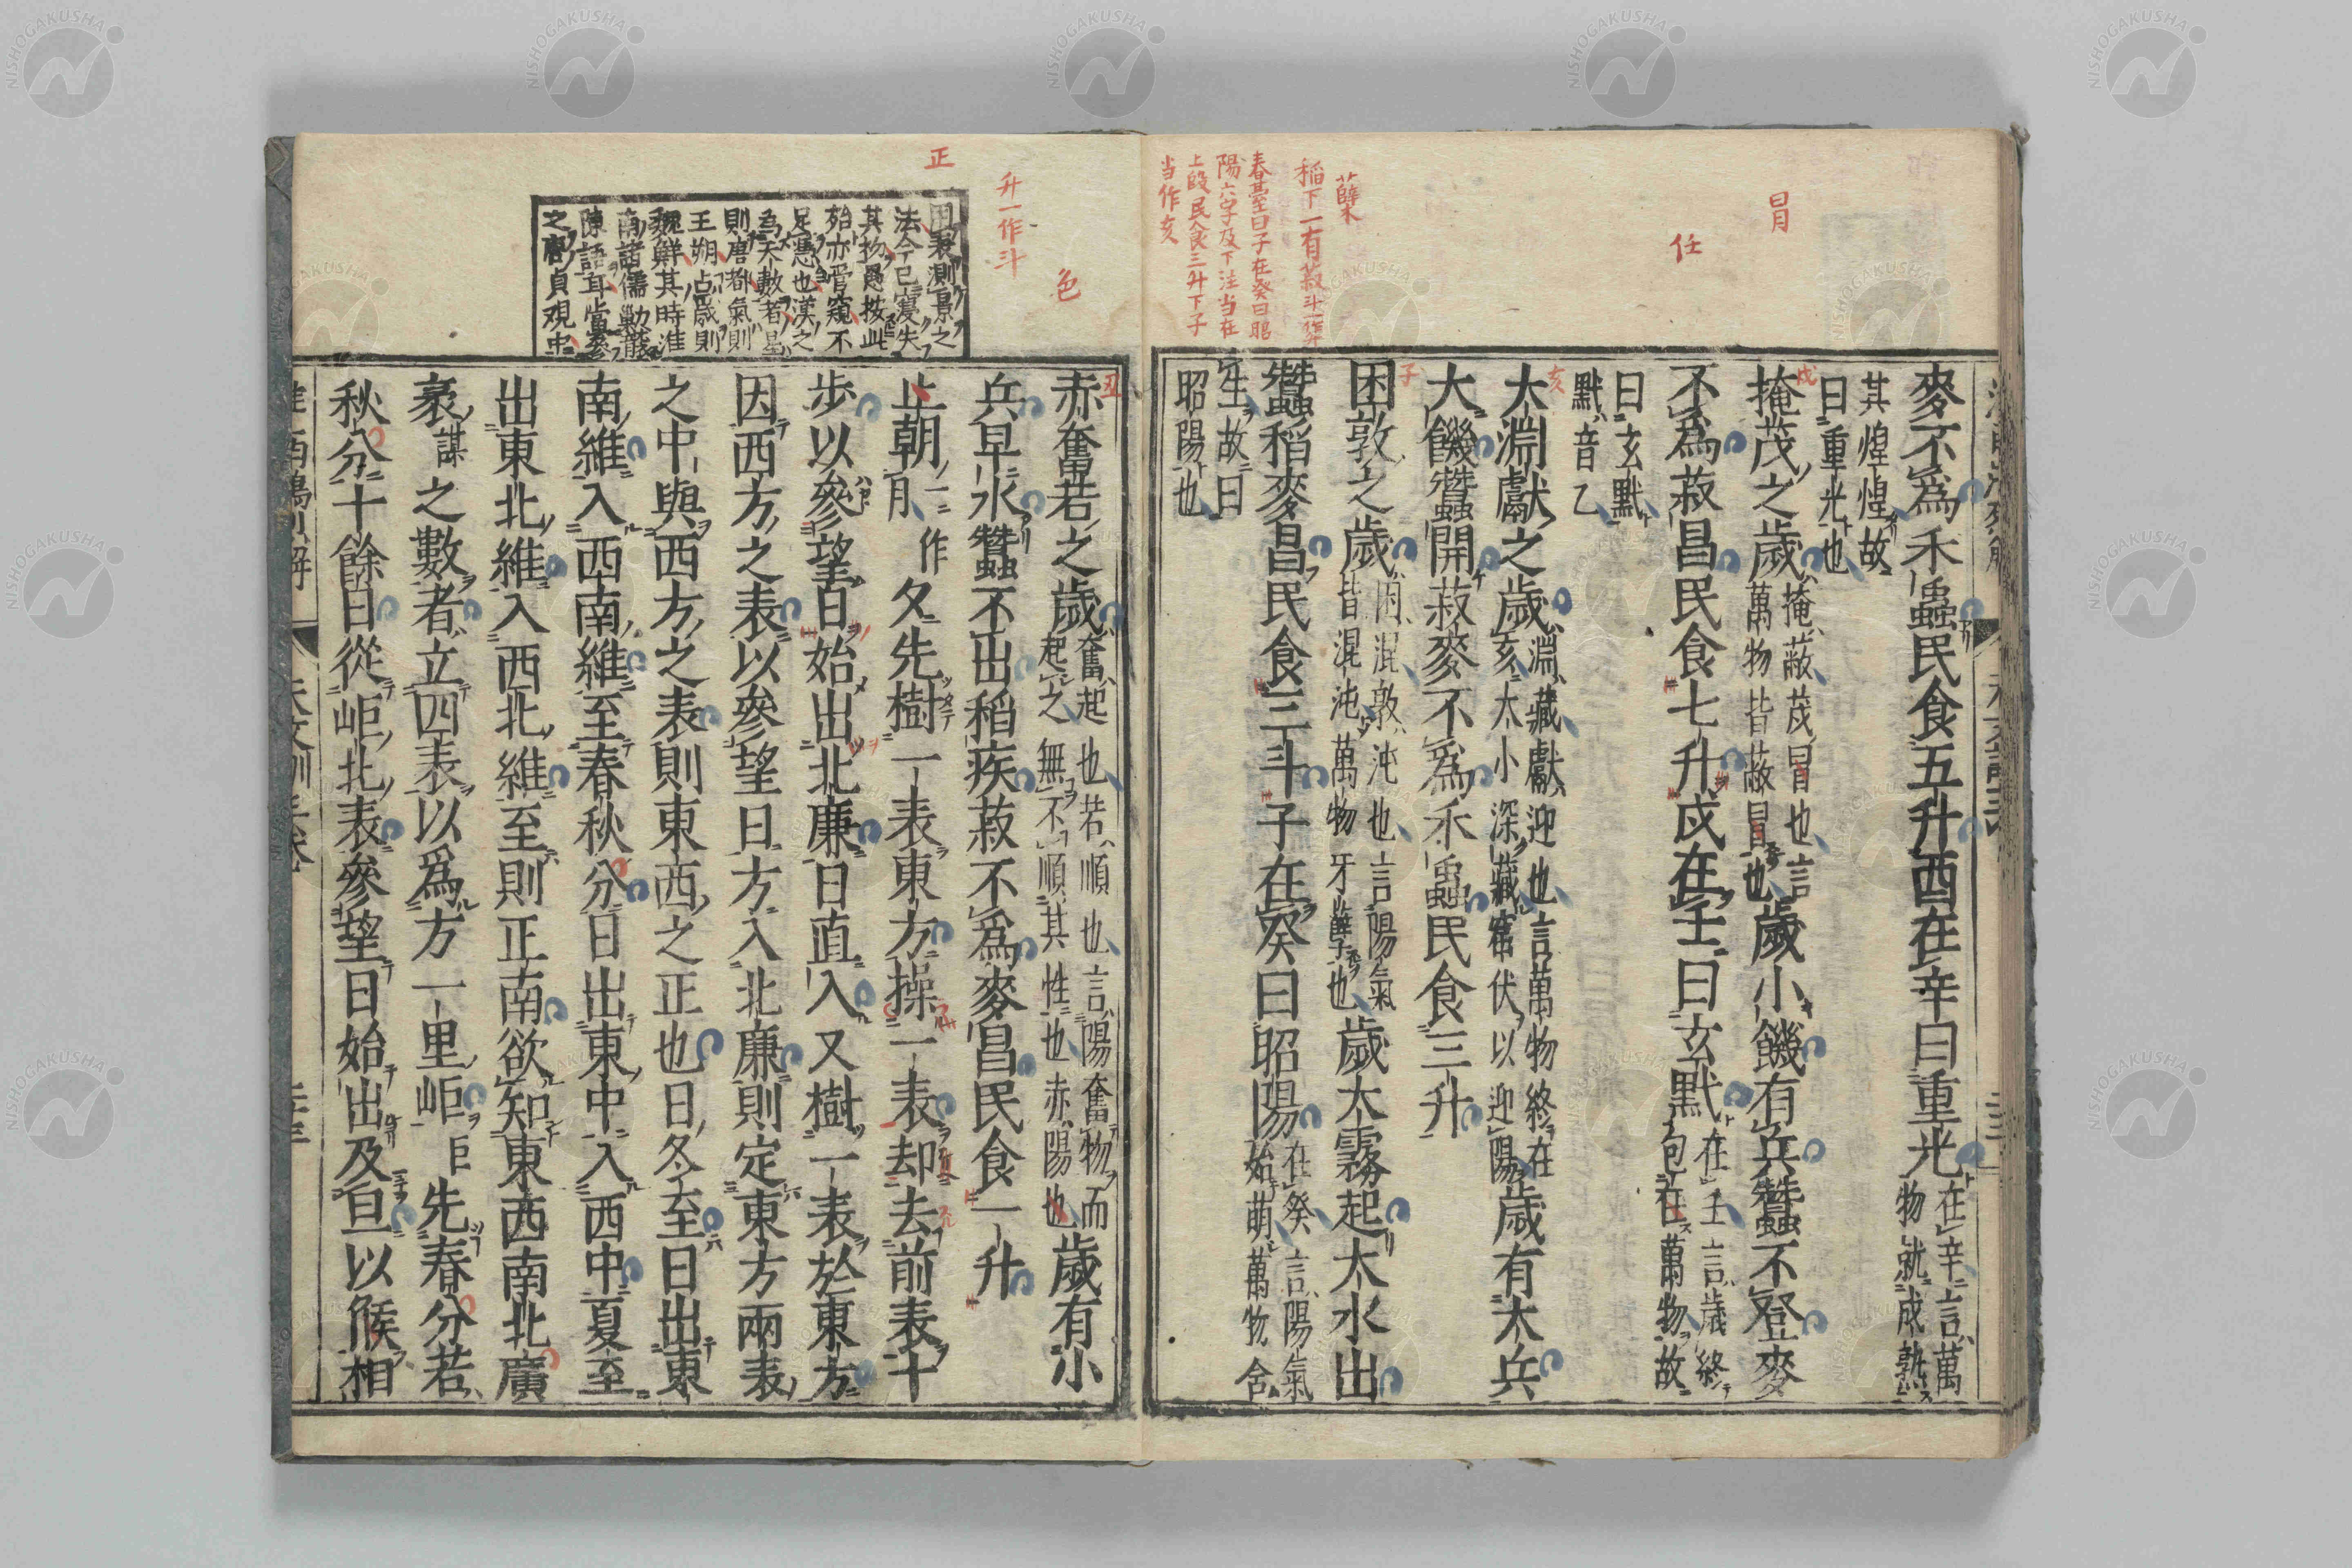 冒
任
蘖
稲下一有菽斗一作升
春臺曰子在癸曰昭
陽六字及下注当在
上段民食三升下子
当作亥
麥不爲禾蟲民食五升酉在辛曰重光在辛言萬物就成熟
其煌煌故曰重光也
掩茂之歲掩蔽茂冒也言萬物皆蔽冒也歲小饑有兵蠶不登麥
不爲菽昌民食七升戌在壬曰玄黓在壬言歲終包在萬物故
曰玄黓黓音乙
亥
大淵獻之歲淵藏獻迎也言萬物終在亥大小深藏窟伏以迎陽歲有大兵
大饑蠶開菽麥不爲禾蟲民食三升
子
困敦之歲困混敦沌也言陽氣皆混沌萬物牙蘖也歲大霧起大水出
蠶稻麥昌民食三斗子在癸曰昭陽在癸言陽氣始萌萬物含
生故曰昭陽也
色
升一作斗
正
田表測景之
法今已寖失
其物愚按此
殆亦管窺不
足憑也漢之
爲天數者星
則唐都氣則
王朔占歲則
魏鮮其時淮
南諸儒勦
陳語耳當參
之貞觀中
丑
赤奮若之歲奮起也若順也言陽奮物而起之無不順其性也赤陽也歲有小
兵早水蠶不出稻疾菽不爲麥昌民食一升
止朝一作月夂先樹一表東方操一表却去前表十
步以參望日始出北廉日直入又樹一表於東方
因西方之表以參望日方入北廉則定東方兩表
之中與西方之表則東西之正也日冬至日出東
南維入西南維至春秋分日出東中入西中夏至
出東北維入西北維至則正南欲知東西南北廣
袤謀之數者立四表以爲方一里岠巨先春分若
秋分十餘日從岠北表參望日始出及旦以候相